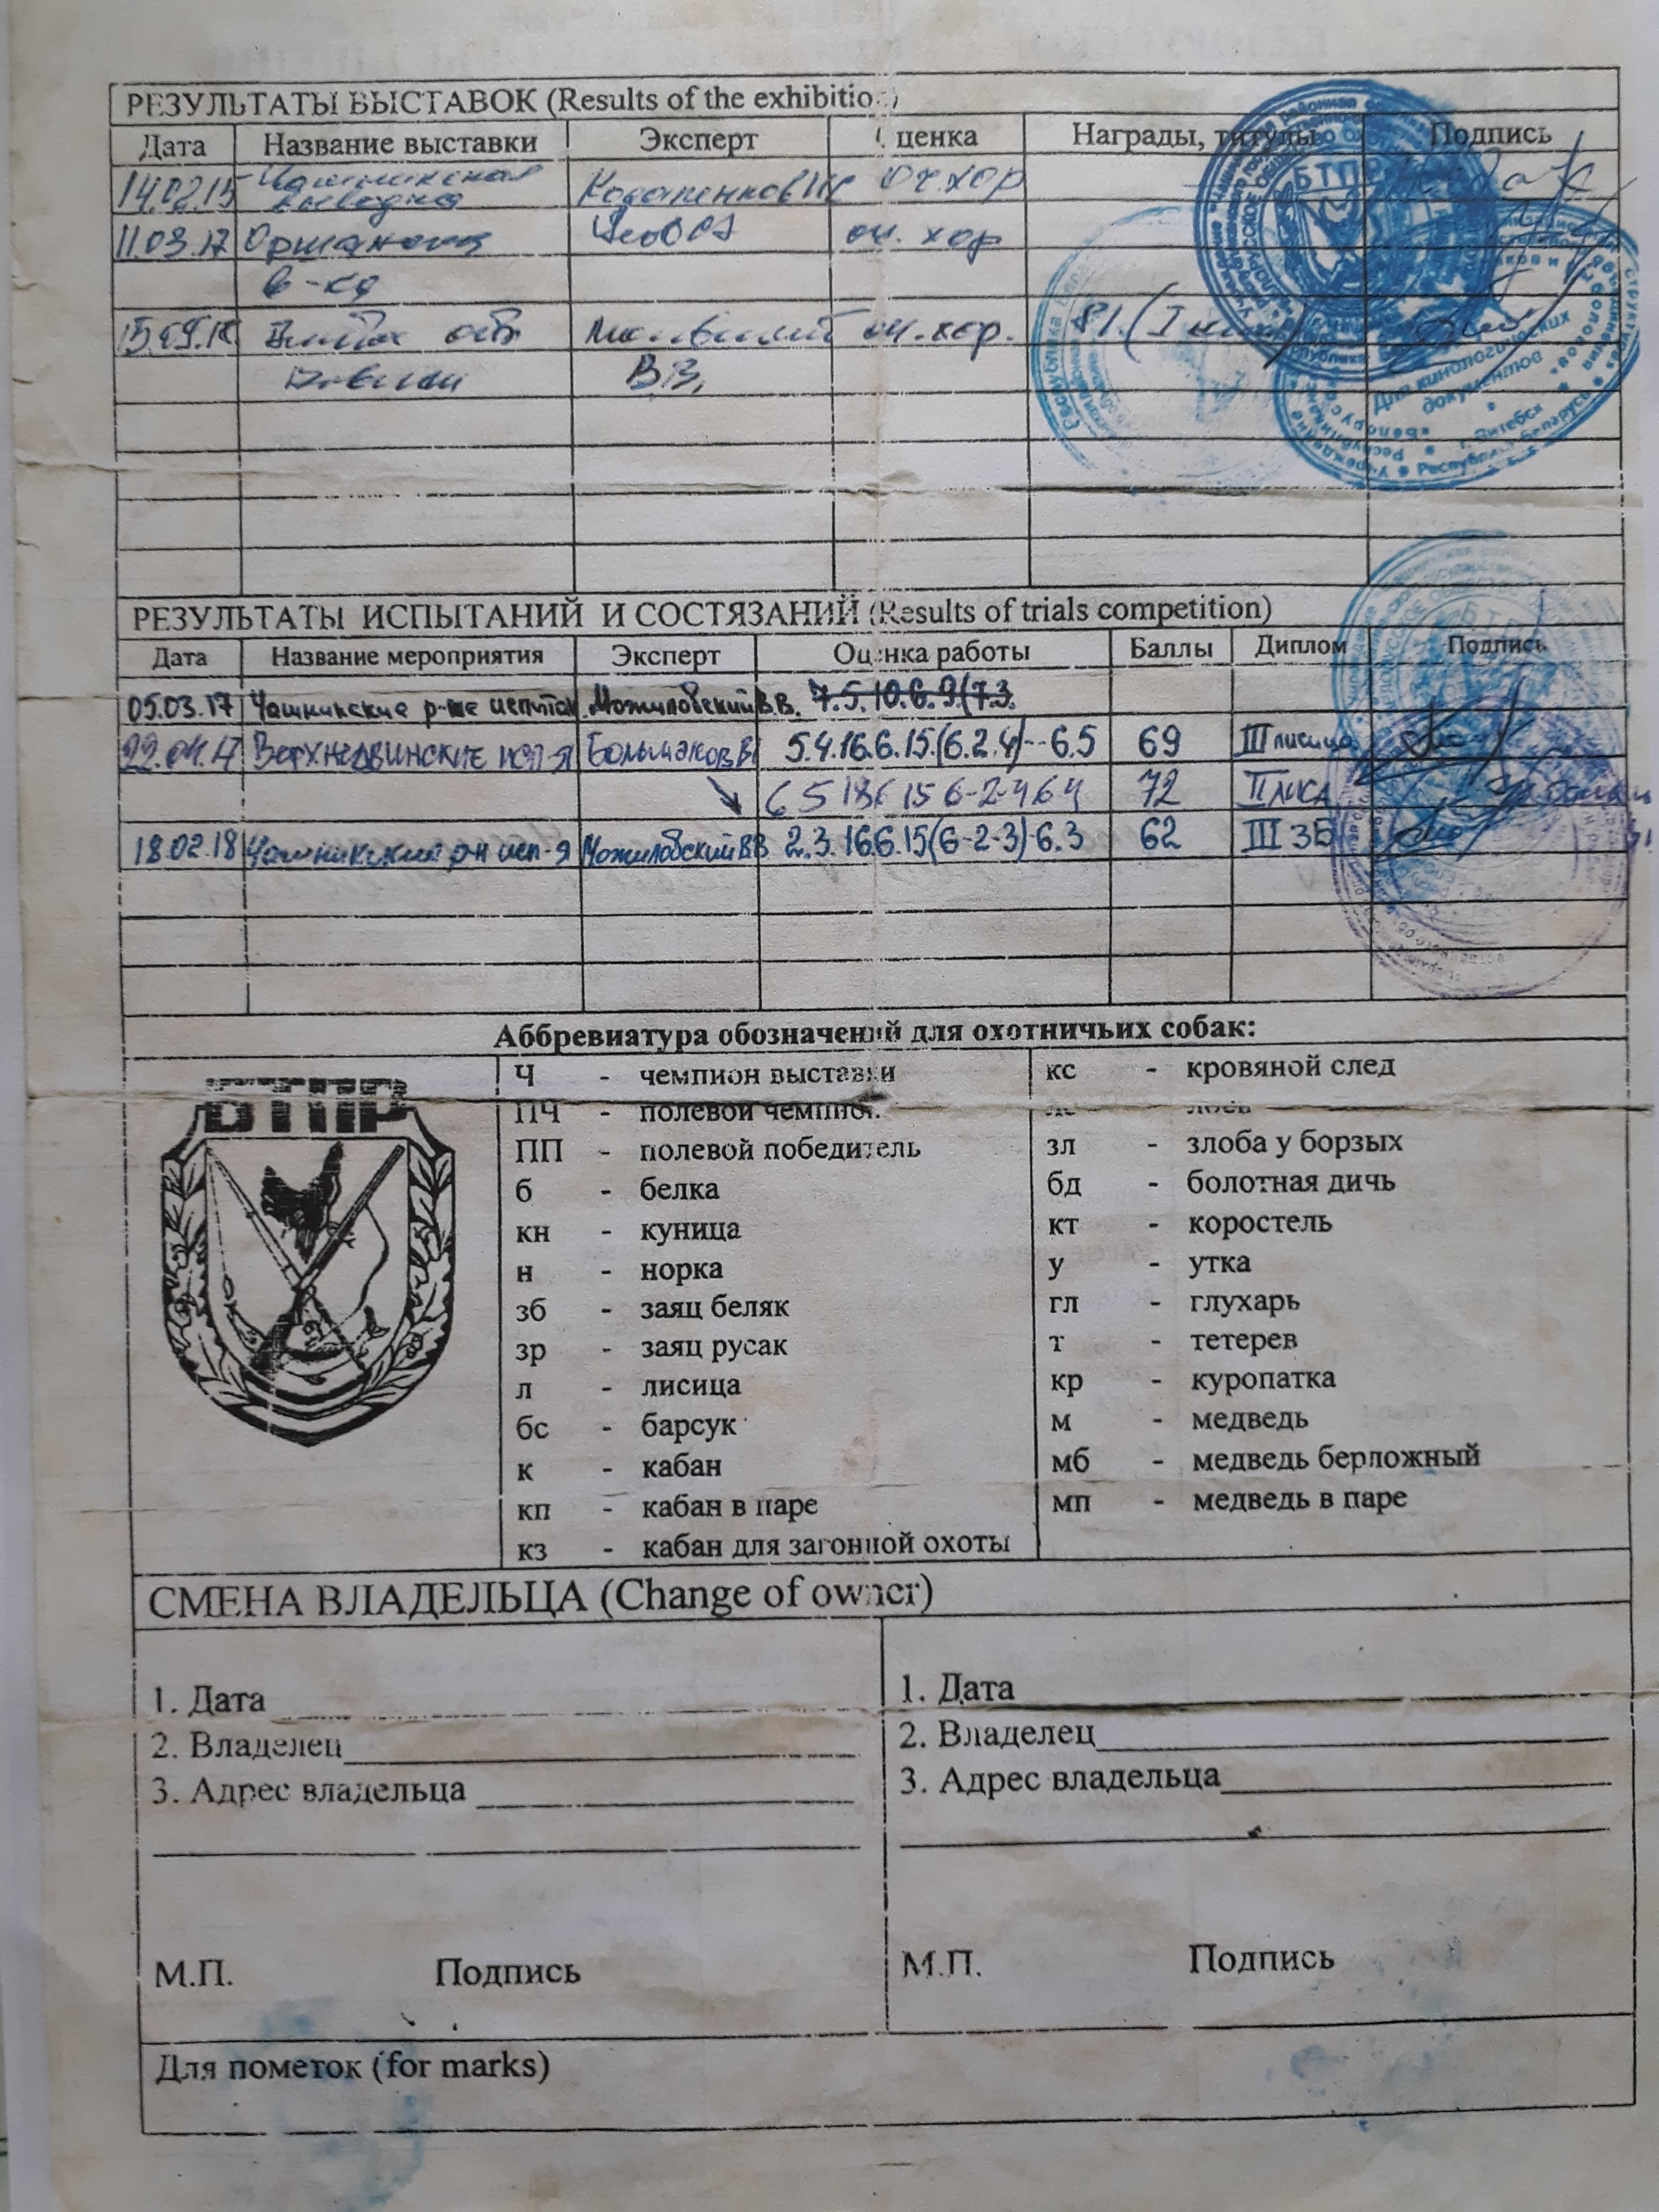 РЕЗУЛЬТАТЫ ВЫСТАВОК (Results of the exhibition)
Дата Название выставки Эксперт Оценка Награды, титулы Подпись
14.02.15 Чашникская выводка оч.хор
11.03.17 Оршанская оч. хор
в-ка
оч.хор. 81. (I
В.В.
БТПР
Для кинологических документов
г. Витебск
Республика Беларусь
РЕЗУЛЬТАТЫ ИСПЫТАНИЙ И СОСТЯЗАНИЙ (Results of trials competition)
Дата Название мероприятия Эксперт Оценка работы Баллы Диплом Подпись
05.03.17 Чашникские р-ые Можиловский В.В. 7.5.10.6.9.(7.3.
22.04.17 Верхнедвинские исп-я Большаков В 5.4.16.6.15.(6.2.4)--6.5 69 III лисица
6 5 18 6 15 6-2-4 6 4 72 II лиса
18.02.18 Чашникский р-н исп-я Можиловский В В 2.3.16.6.15(6-2-3)6.3 62 III ЗБ
Аббревиатура обозначений для охотничьих собак:
БТПР
Ч - чемпион выставки кс - кровяной след
ПЧ - полевой чемпион лс - лось
ПП - полевой победитель зл - злоба у борзых
б - белка бд - болотная дичь
кн - куница кт - коростель
н - норка у - утка
зб - заяц беляк гл - глухарь
зр - заяц русак т - тетерев
л - лисица кр - куропатка
бс - барсук м - медведь
к - кабан мб - медведь берложный
кп - кабан в паре мп - медведь в паре
кз - кабан для загонной охоты
СМЕНА ВЛАДЕЛЬЦА (Change of owner)
1. Дата
2. Владелец
3. Адрес владельца
М.П. Подпись
1. Дата
2. Владелец
3. Адрес владельца
М.П. Подпись
Для пометок (for marks)